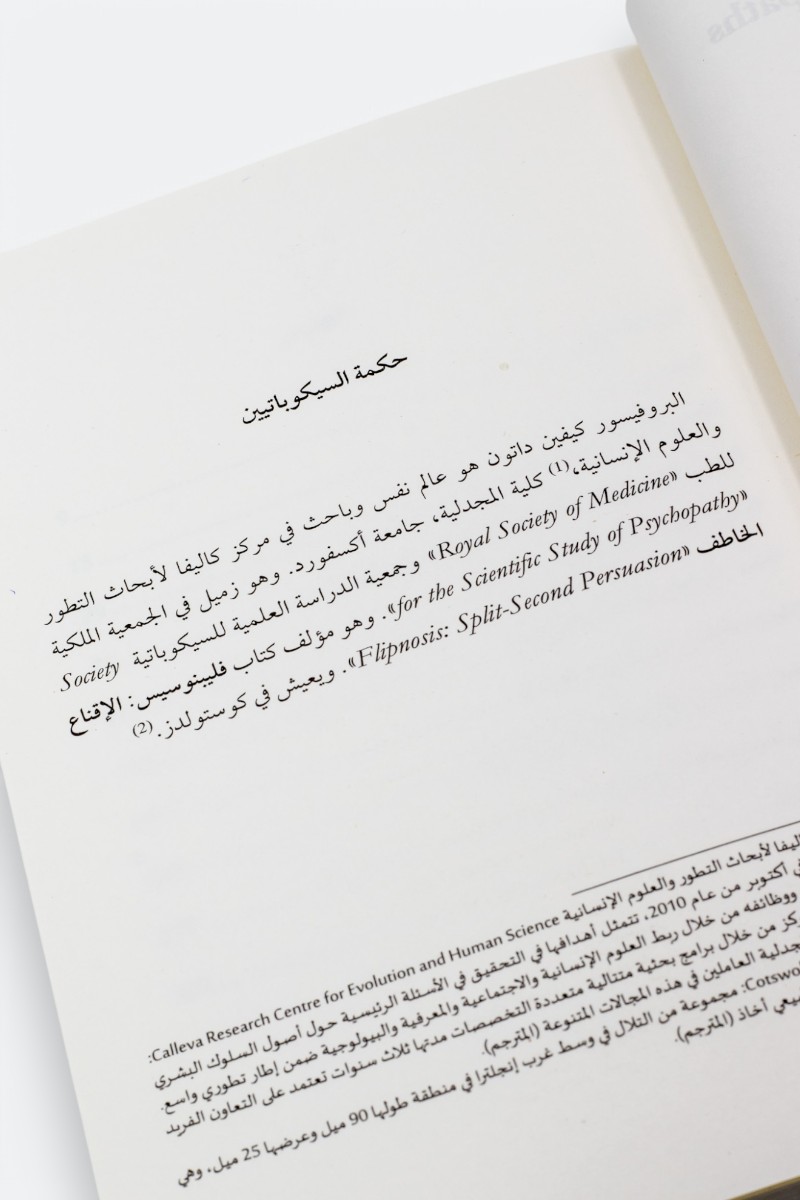 حكمة السيكوباتيين
البروفيسور كيفين داتون هو عالم نفس وباحث في مركز كاليفا لأبحاث التطور
والعلوم الإنسانية،(1) كلية المجدلية، جامعة أكسفورد. وهو زميل في الجمعية الملكية
للطب «Royal Society of Medicine» وجمعية الدراسة العلمية للسيكوباتية Society
«for the Scientific Study of Psychopathy». وهو مؤلف كتاب فليبنوسيس: الإقناع
الخاطف «Flipnosis: Split-Second Persuasion». ويعيش في كوستولدز.(2)
لأبحاث التطور والعلوم الإنسانية Calleva Research Centre for Evolution and Human Science:
أكتوبر من عام 2010، تتمثل أهدافها في التحقيق في الأسئلة الرئيسية حول أصول السلوك البشري
ووظائفه من خلال ربط العلوم الإنسانية والاجتماعية والمعرفية والبيولوجية ضمن إطار تطوري واسع.
من خلال برامج بحثية متتالية متعددة التخصصات مدتها ثلاث سنوات تعتمد على التعاون الفريد
العاملين في هذه المجالات المتنوعة (المترجم).
مجموعة من التلال في وسط غرب إنجلترا في منطقة طولها 90 ميل وعرضها 25 ميل، وهي
أخاذ (المترجم).